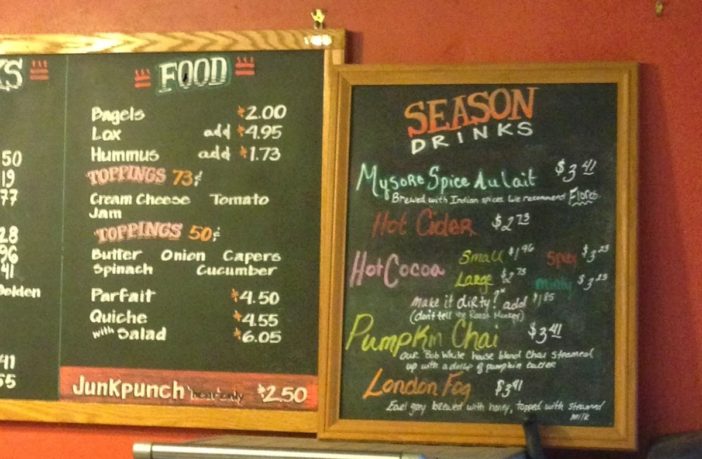 KS
50
19
77
28
96
41
Golden
41
55
FOOD
Bagels $2.00
Lox add $4.95
Hummus add $1.73
TOPPINGS 73¢
Cream Cheese Tomato
Jam
TOPPINGS 50¢
Butter Onion Capers
Spinach Cucumber
Parfait $4.50
Quiche $4.55
with Salad $6.05
JunkPunch $2.50
SEASON
DRINKS
Mysore Spice Au Lait $3.41
Brewed with Indian spices. We recommend Flores.
Hot Cider $2.73
Hot Cocoa Small $1.96 Spicy $3.23
Large $2.73 Minty $3.23
make it dirty?" add $1.85
(don't tell the Roast Master)
Pumpkin Chai $3.41
our Bob White house blend chai steamed
up with a dollop of pumpkin butter
London Fog $3.41
Earl gray brewed with honey, topped with steamed
milk